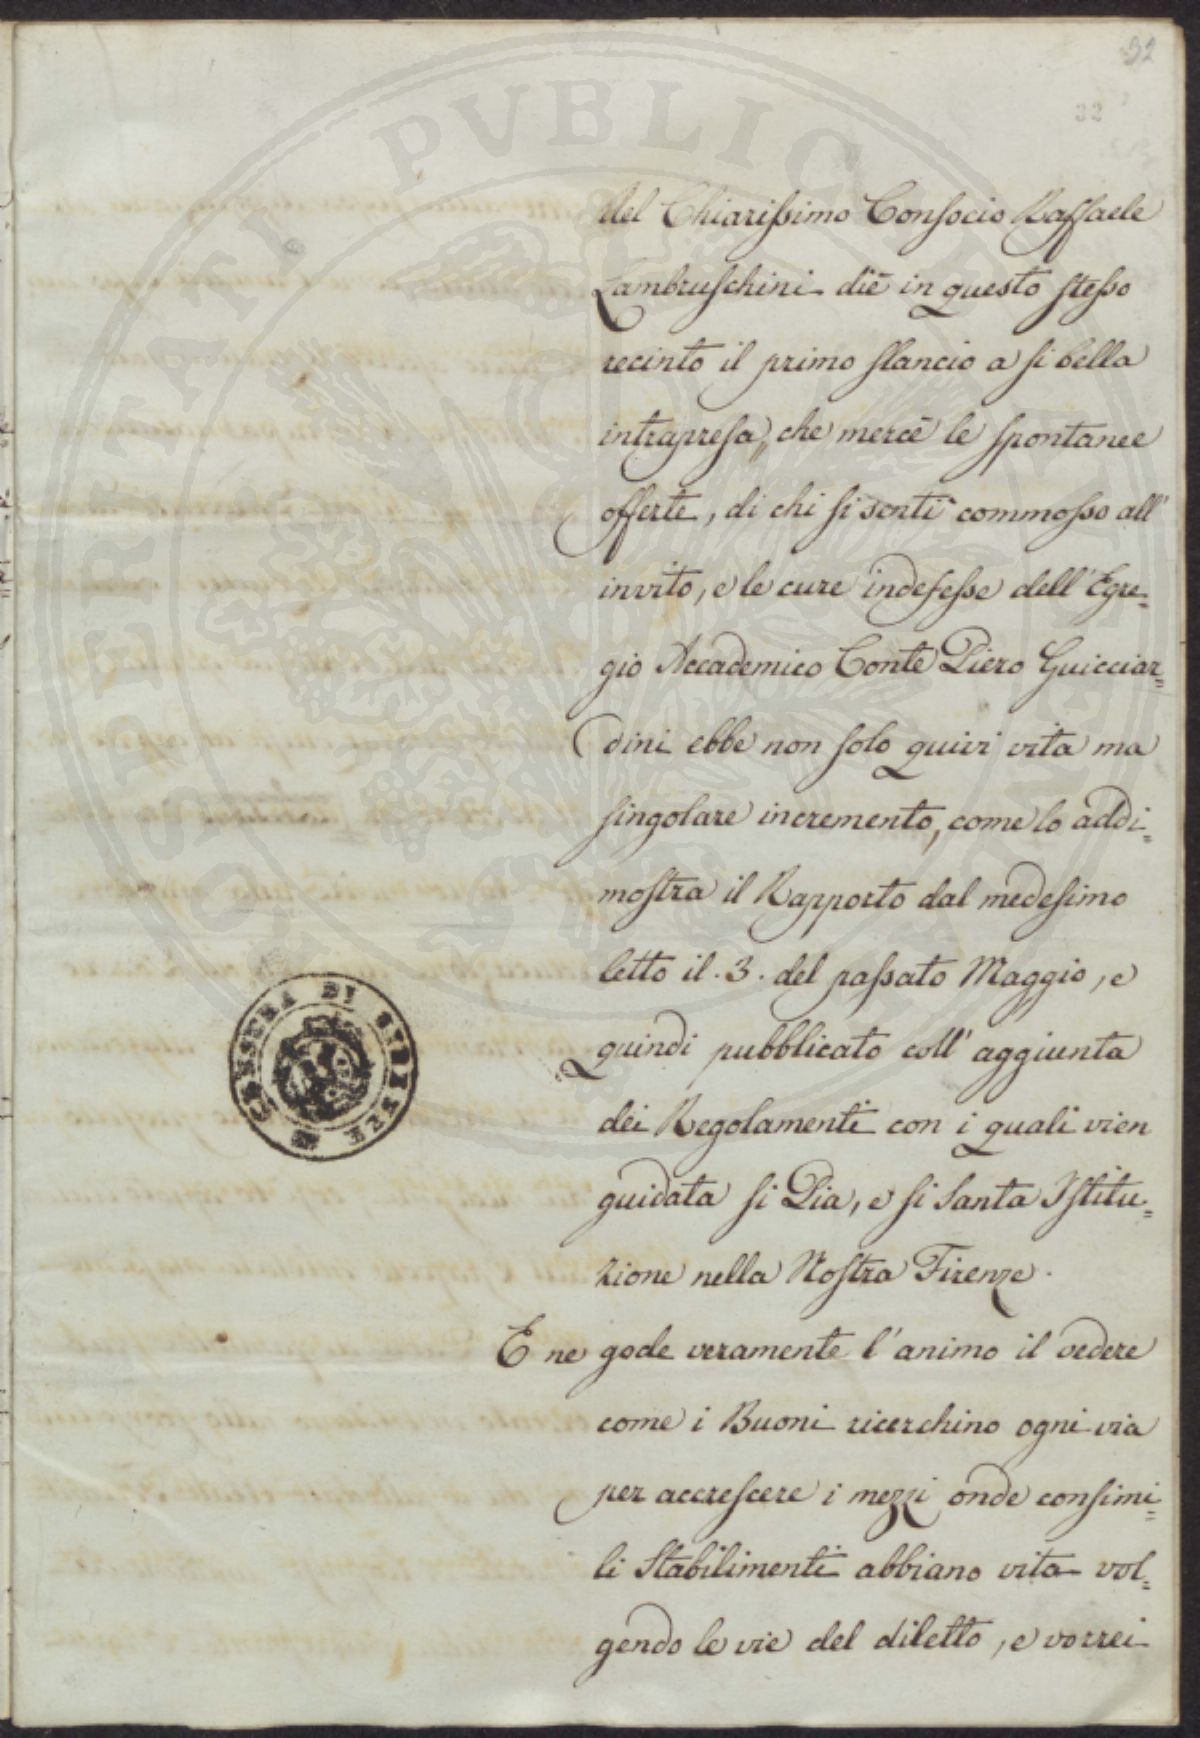 32
32
del Chiarissimo Consocio Raffaele
Lambruschini diè in questo stesso
recinto il primo slancio a si bella
intrapresa, che mercè le spontanee
offerte, di chi si sentì commosso all'
invito, e le cure indefesse dell'Egre=
gio Accademico Conte Piero Guicciar=
dini ebbe non solo quivi vita ma
singolare incremento, come lo addi=
mostra il Rapporto dal medesimo
letto il .3. del passato Maggio, e
quindi pubblicato coll' aggiunta
dei Regolamenti con i quali vien
guidata si Pia, e si Santa Istitu=
zione nella Nostra Firenze.
E ne gode veramente l'animo il vedere
come i Buoni ricerchino ogni via
per accrescere i mezzi onde consimi=
li Stabilimenti abbiano vita vol=
gendo le vie del diletto, e vorrei
CENSURA DI FIRENZE
PROSPERITATI PVBLICAE AVGENDAE